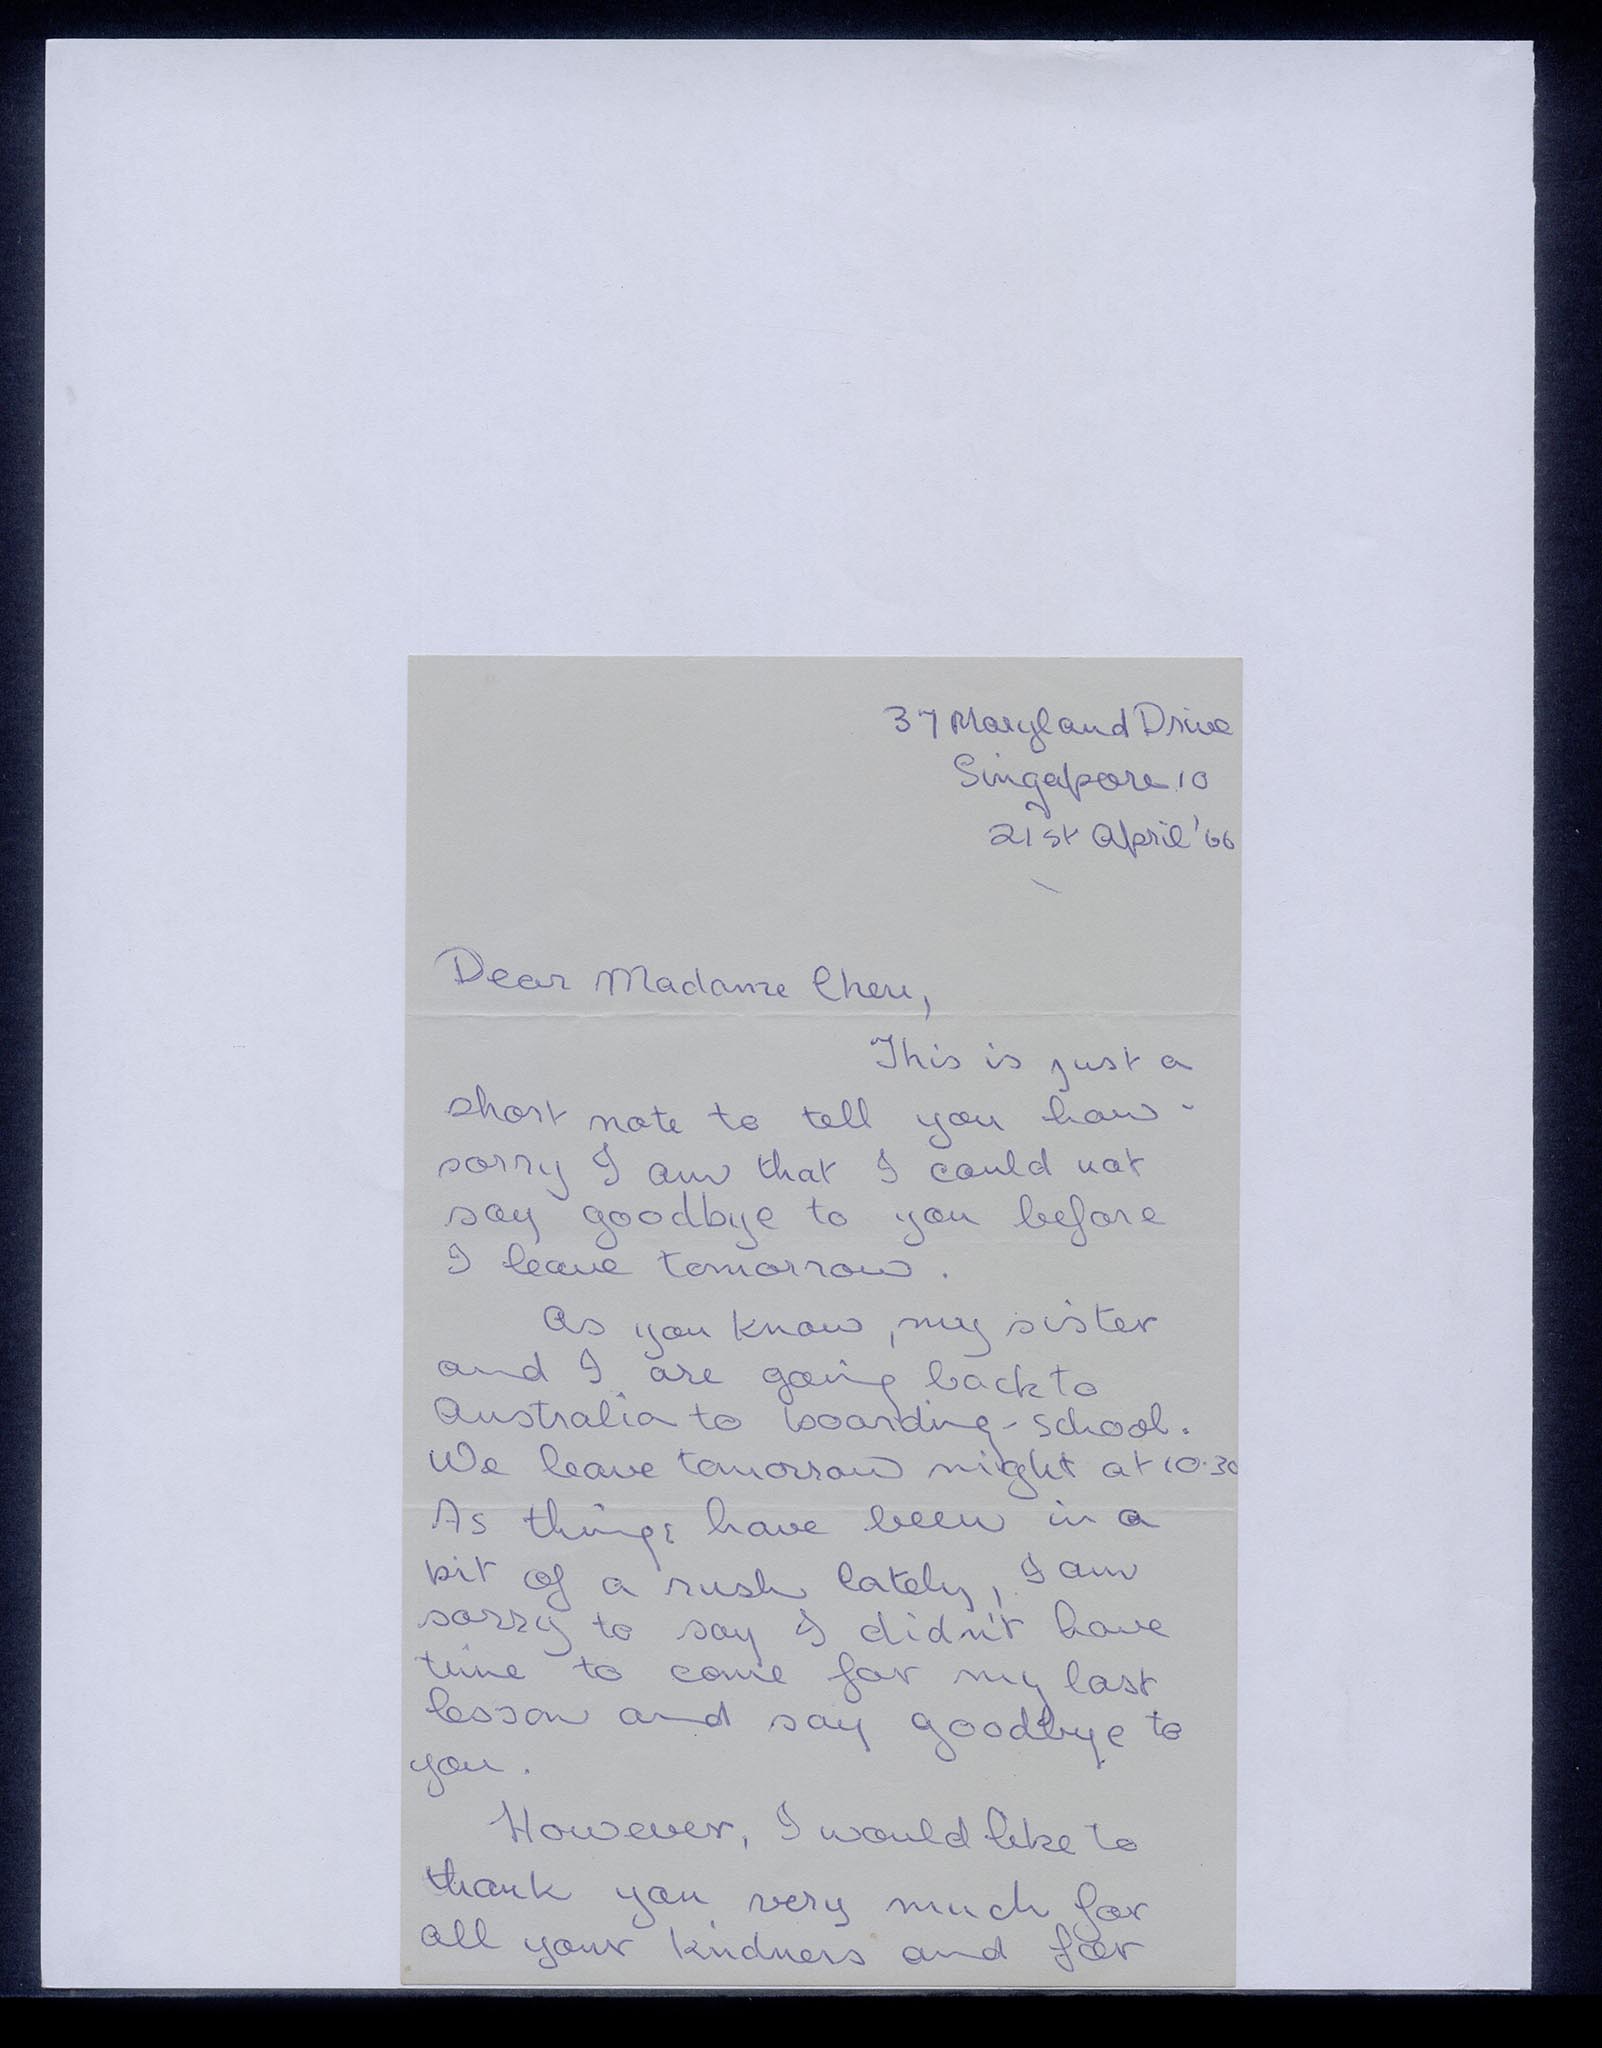 37 Maryland Drive
Singapore 10
21st April '66
Dear Madame Cheru,
This is just a
short note to tell you how
sorry I am that I could not
say goodbye to you before
I leave tomorrow.
As you know, my sister
and I are going back to
Australia to boarding-school.
We leave tomorrow night at 10.30
As things have been in a
bit of a rush lately, I am
sorry to say I didn't have
time to come for my last
lesson and say goodbye to
you.
However, I would like to
thank you very much for
all your kindness and for